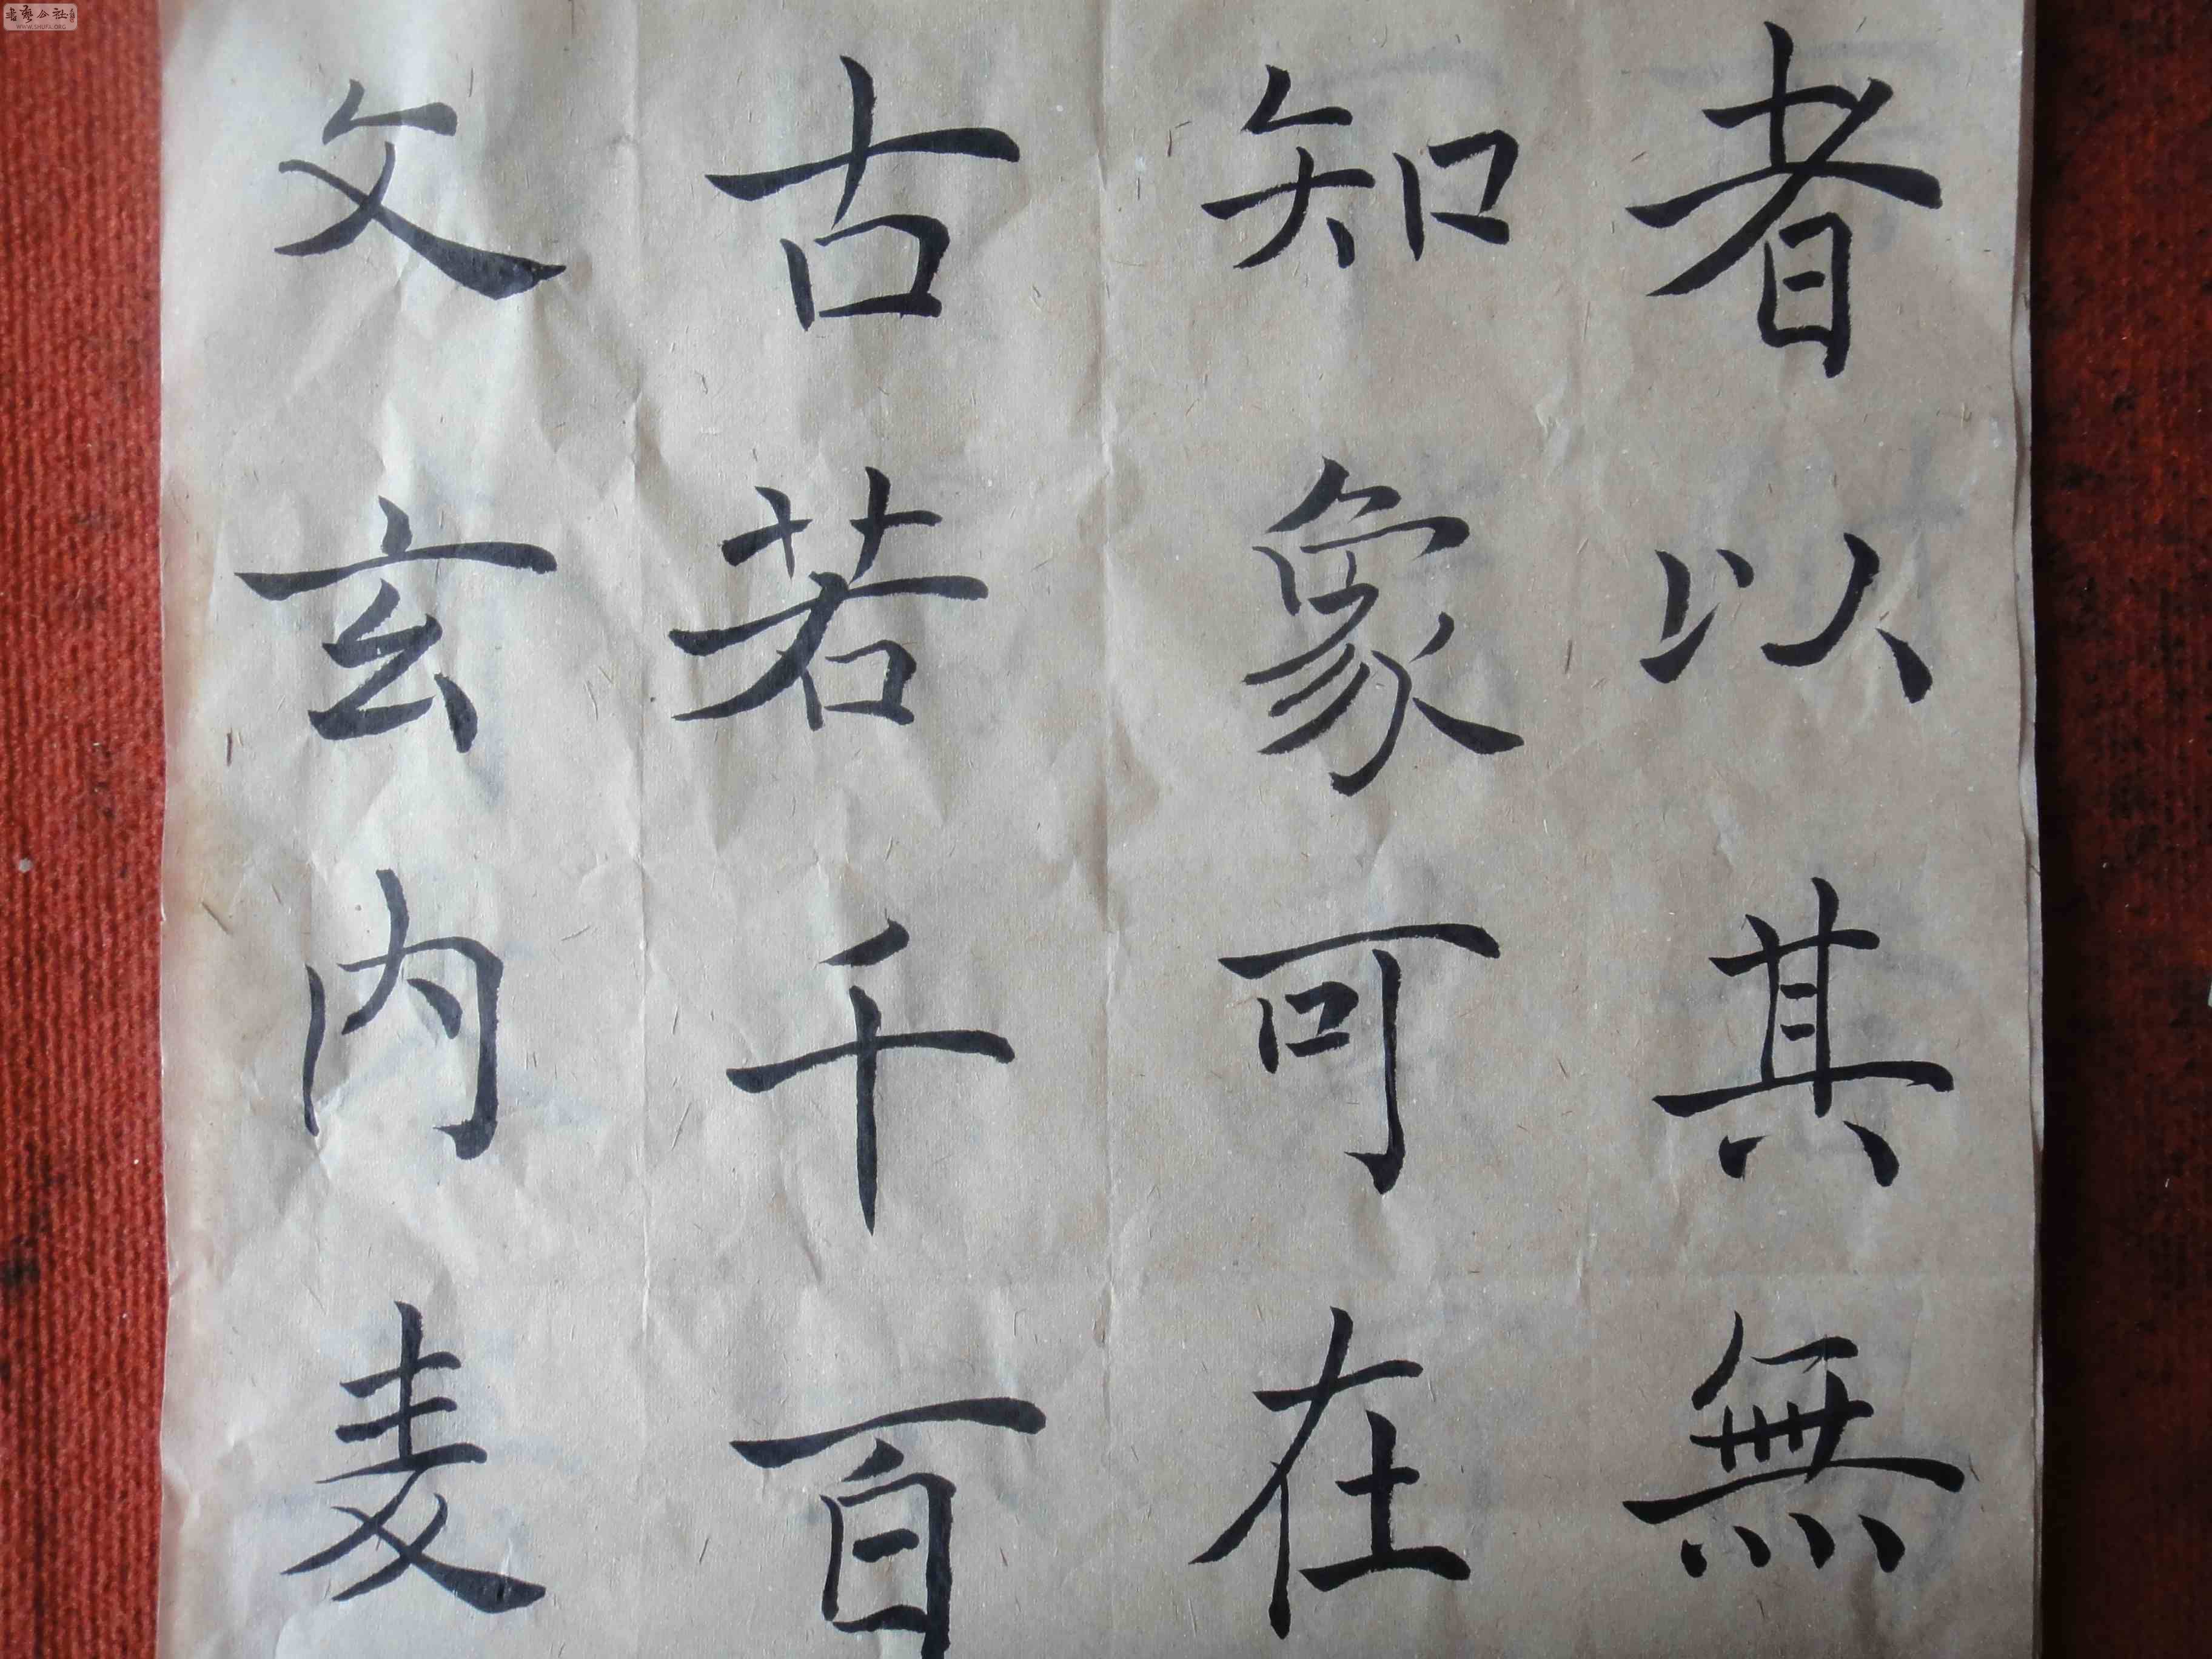 者以其無
知象可在
古若千百
文玄内麦
書藝公社
WWW.SHUFA.ORG